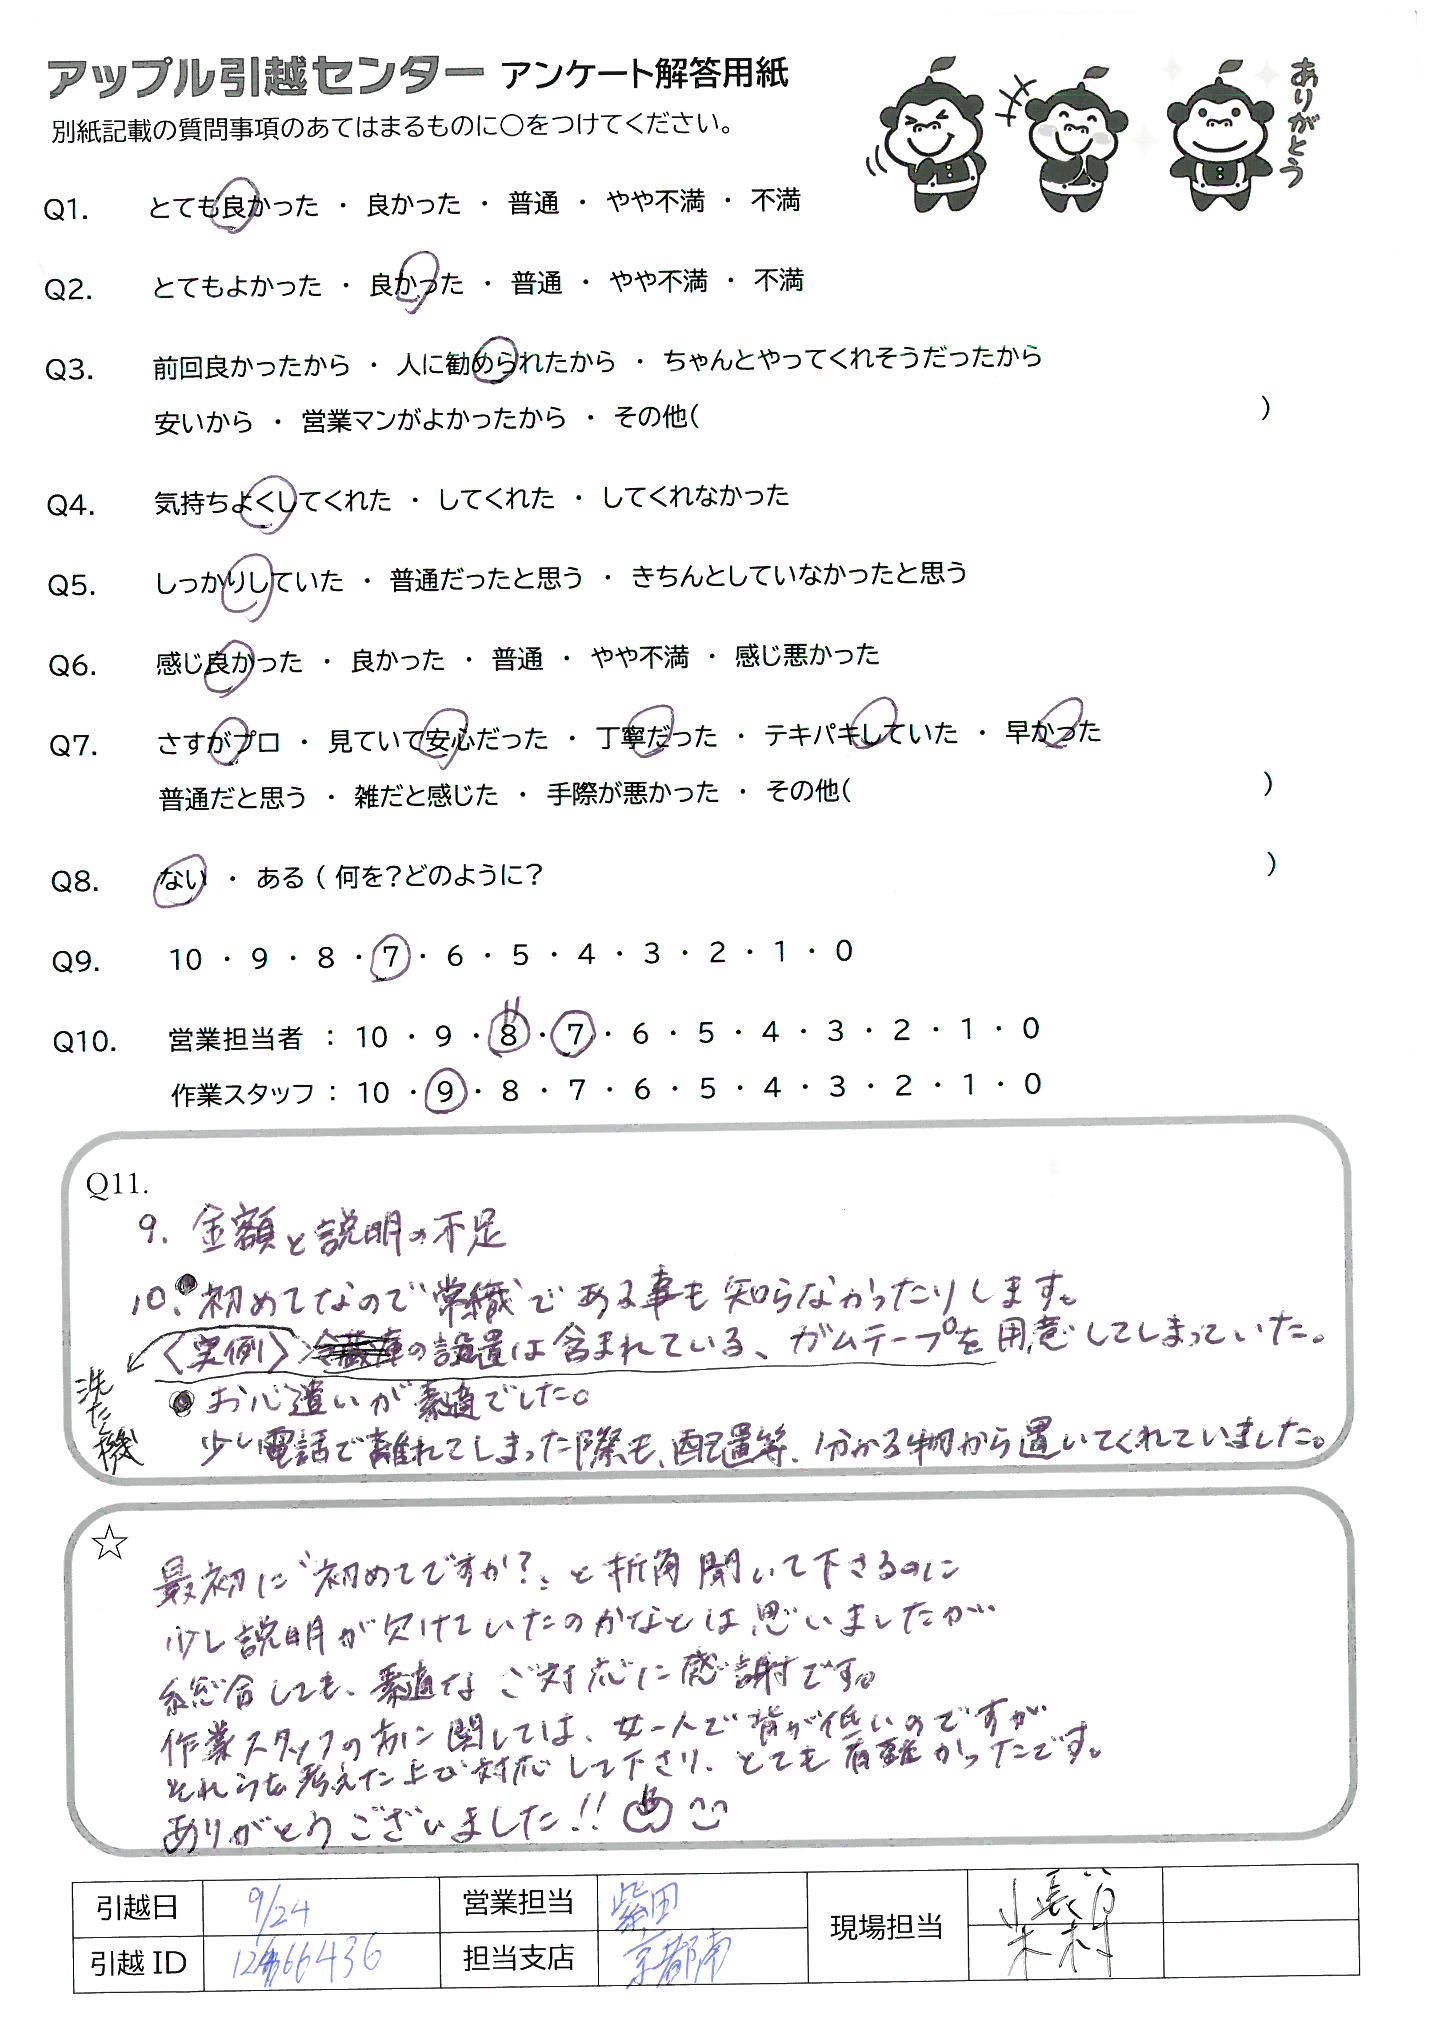 アップル引越センター アンケート解答用紙
ありがとう
別紙記載の質問事項のあてはまるものに○をつけてください。
Q1. とても良かった ・ 良かった ・ 普通 ・ やや不満 ・ 不満
Q2. とてもよかった ・ 良かった ・ 普通 ・ やや不満 ・ 不満
Q3. 前回良かったから ・ 人に勧められたから ・ ちゃんとやってくれそうだったから
安いから ・ 営業マンがよかったから ・ その他( )
Q4. 気持ちよくしてくれた ・ してくれた ・ してくれなかった
Q5. しっかりしていた ・ 普通だったと思う ・ きちんとしていなかったと思う
Q6. 感じ良かった ・ 良かった ・ 普通 ・ やや不満 ・ 感じ悪かった
Q7. さすがプロ ・ 見ていて安心だった ・ 丁寧だった ・ テキパキしていた ・ 早かった
普通だと思う ・ 雑だと感じた ・ 手際が悪かった ・ その他( )
Q8. ない ・ ある ( 何を?どのように? )
Q9. 10 ・ 9 ・ 8 ・ 7 ・ 6 ・ 5 ・ 4 ・ 3 ・ 2 ・ 1 ・ 0
Q10. 営業担当者 : 10 ・ 9 ・ 8 ・ 7 ・ 6 ・ 5 ・ 4 ・ 3 ・ 2 ・ 1 ・ 0
作業スタッフ : 10 ・ 9 ・ 8 ・ 7 ・ 6 ・ 5 ・ 4 ・ 3 ・ 2 ・ 1 ・ 0
Q11.
9. 金額と説明の不足
10. 初めてなので"常識"である事も知らなかったりします。
〈実例〉冷蔵庫の設置は含まれている、ガムテープを用意してしまっていた。
洗たく機
お心遣いが素適でした。
少し電話で離れてしまった際も、配置等、分かる物から置いてくれていました。
☆
最初に"初めてですか?"と折角聞いて下さるのに
少し説明が欠けていたのかなとは思いましたが
総合しても、素適なご対応に感謝です。
作業スタッフの方に関しては、女一人で背が低いのですが
それらを考えた上で対応して下さり、とても有難かったです。
ありがとうございました!!
引越日 9/24 営業担当 柴田 現場担当 小長谷
引越ID 担当支店 京都南 木村